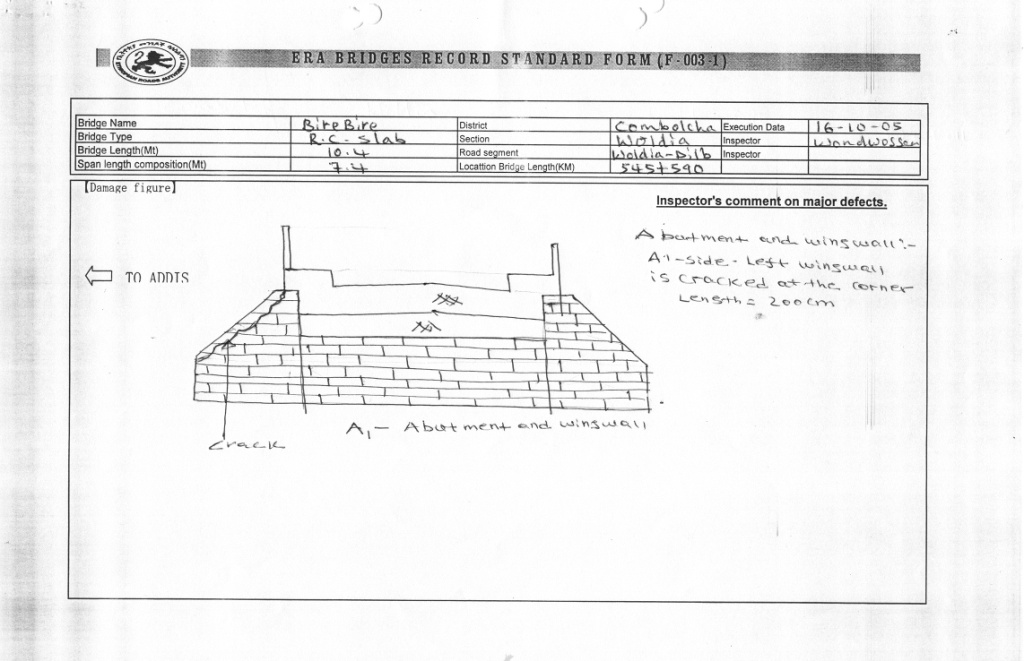 ERA BRIDGES RECORD STANDARD FORM (F-003-1)
Bridge Name BireBire District Combolcha Execution Data 16-10-05
Bridge Type R.C. Slab Section Woldia Inspector Wondwossen
Bridge Length(Mt) 10.4 Road segment Woldia-Dilb Inspector
Span length composition(Mt) 7.4 Locattion Bridge Length(KM) 545+590
[Damage figure]
Inspector's comment on major defects.
Abutment and wingswall:-
A1-side. Left wingswall
is cracked at the corner
Length= 200cm
TO ADDIS
A1- Abutment and wingswall
Crack